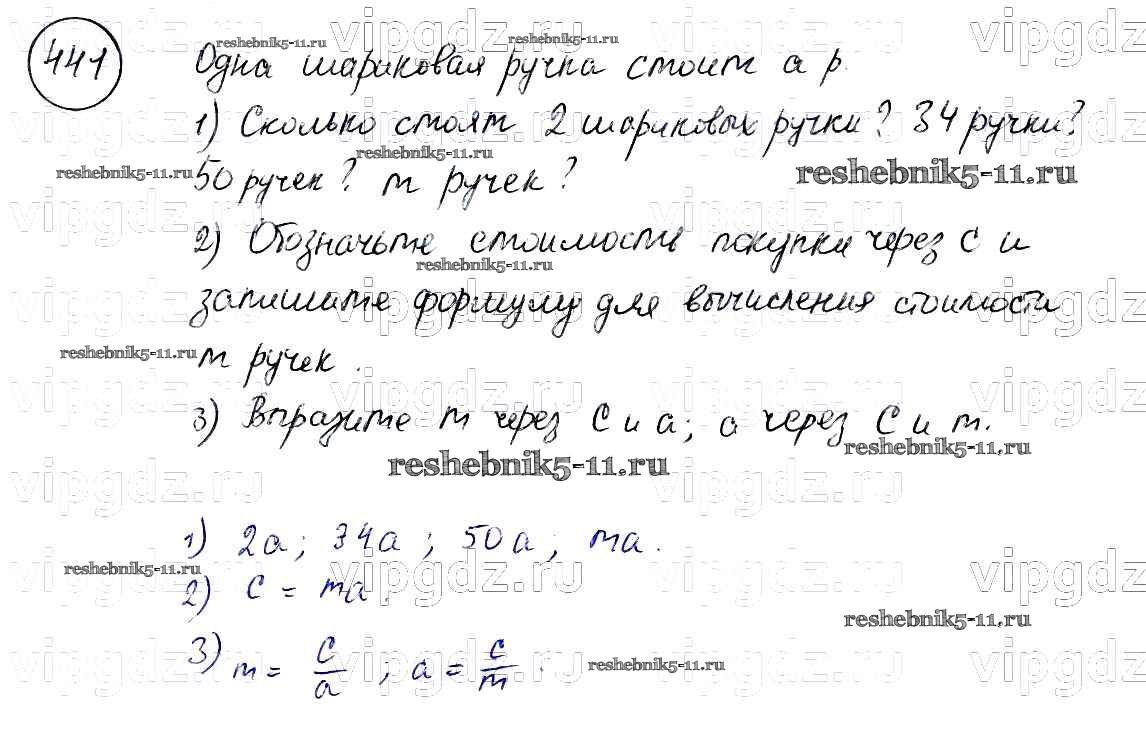 441
Одна шариковая ручка стоит а р.
1) Сколько стоят 2 шариковых ручки? 34 ручки?
50 ручек? m ручек?
2) Обозначьте стоимость покупки через С и
запишите формулу для вычисления стоимости
m ручек.
3) Выразите m через С и а; а через С и m.
1) 2a; 34a; 50a; ma.
2) C = ma.
3) m = C/a, a = C/m.
vipgdz.ru
reshebnik5-11.ru